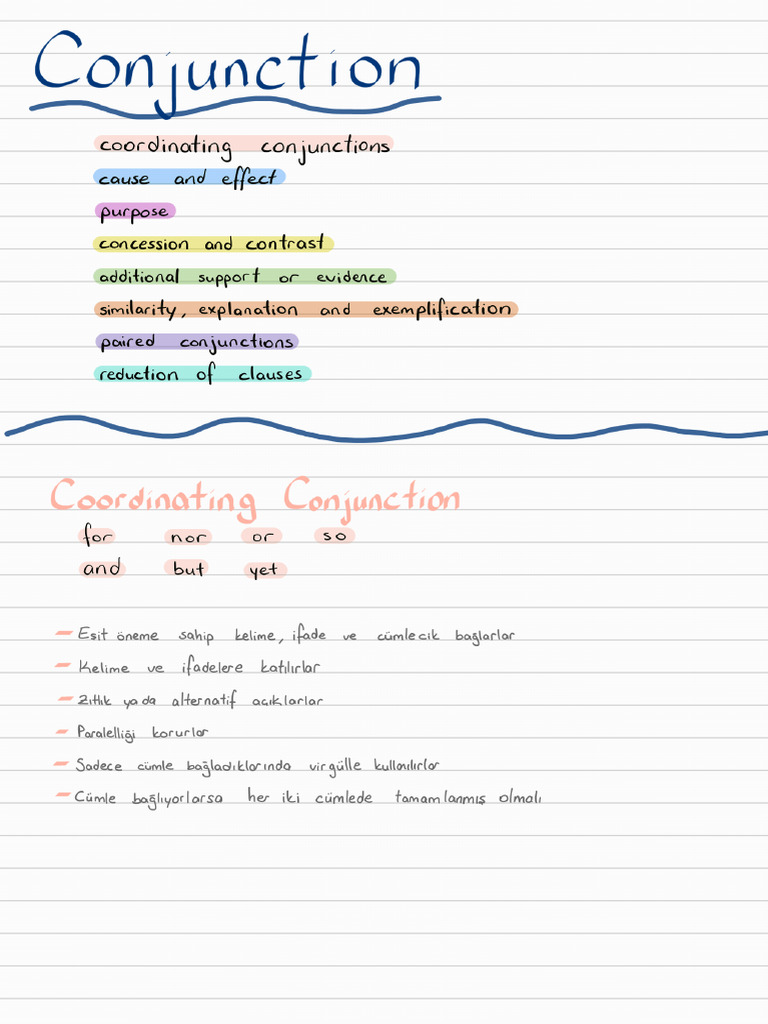 Conjunction
coordinating conjunctions
cause and effect
purpose
concession and contrast
additional support or evidence
similarity, explanation and exemplification
paired conjunctions
reduction of clauses
Coordinating Conjunction
for nor or so
and but yet
- Eşit öneme sahip kelime, ifade ve cümlecik bağlarlar
- Kelime ve ifadelere katılırlar
- Zıtlık ya da alternatif açıklarlar
- Paralelliği korurlar
- Sadece cümle bağladıklarında virgülle kullanılırlar
- Cümle bağlıyorlarsa her iki cümlede tamamlanmış olmalı